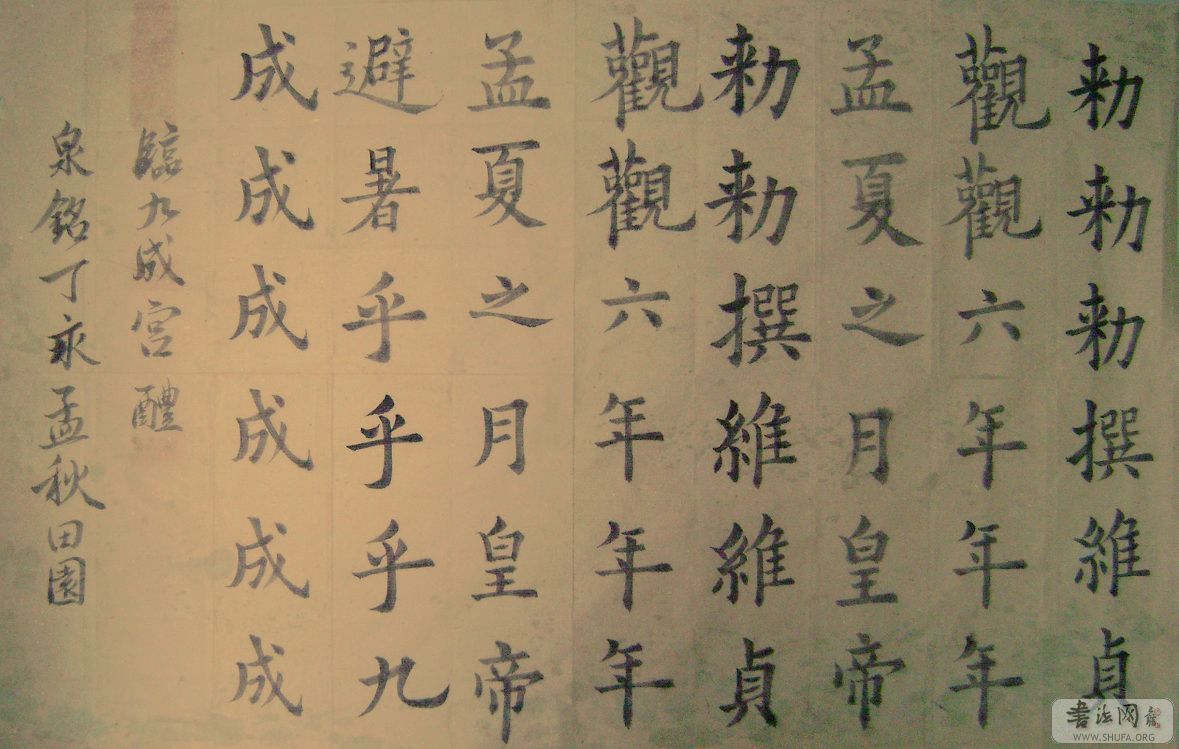 勑勑勑撰維貞
觀觀六年年年
孟夏之月皇帝
勑勑撰維維貞
觀觀六年年年
孟夏之月皇帝
避暑乎乎乎九
成成成成成成
臨九成宮醴
泉銘丁亥孟秋田園
書法网
WWW.SHUFA.ORG